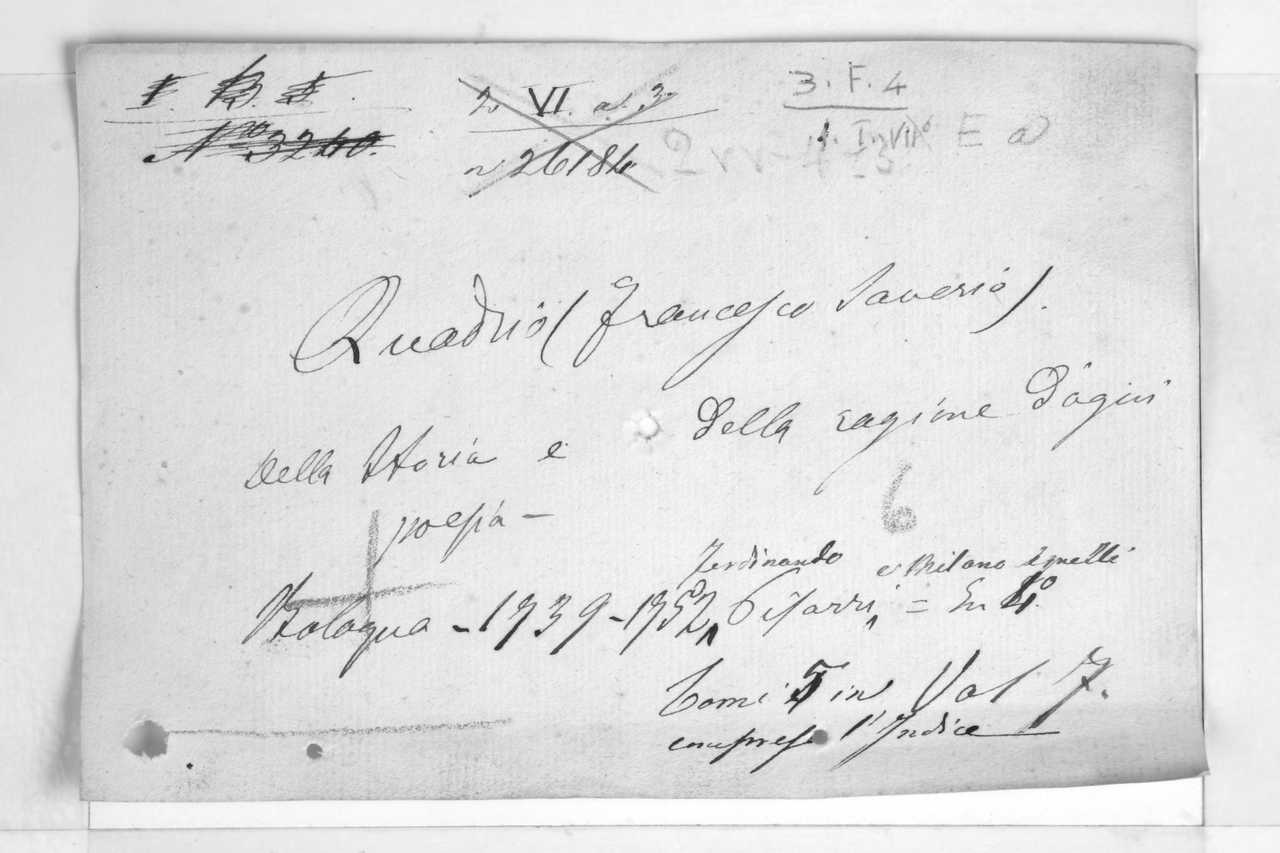 I. B. I.
N.ro 3240.
2. VI. a. 3.
n 26184
3. F. 4
E a
Quadrio (Francesco Saverio).
Della Storia e della ragione d'ogni
poesia –
6
Ferdinando e Milano Agnelli
Bologna – 1739–1752, Pisarri, = In 4.º
Tomi 5 in Vol. 7.
compreso l'Indice